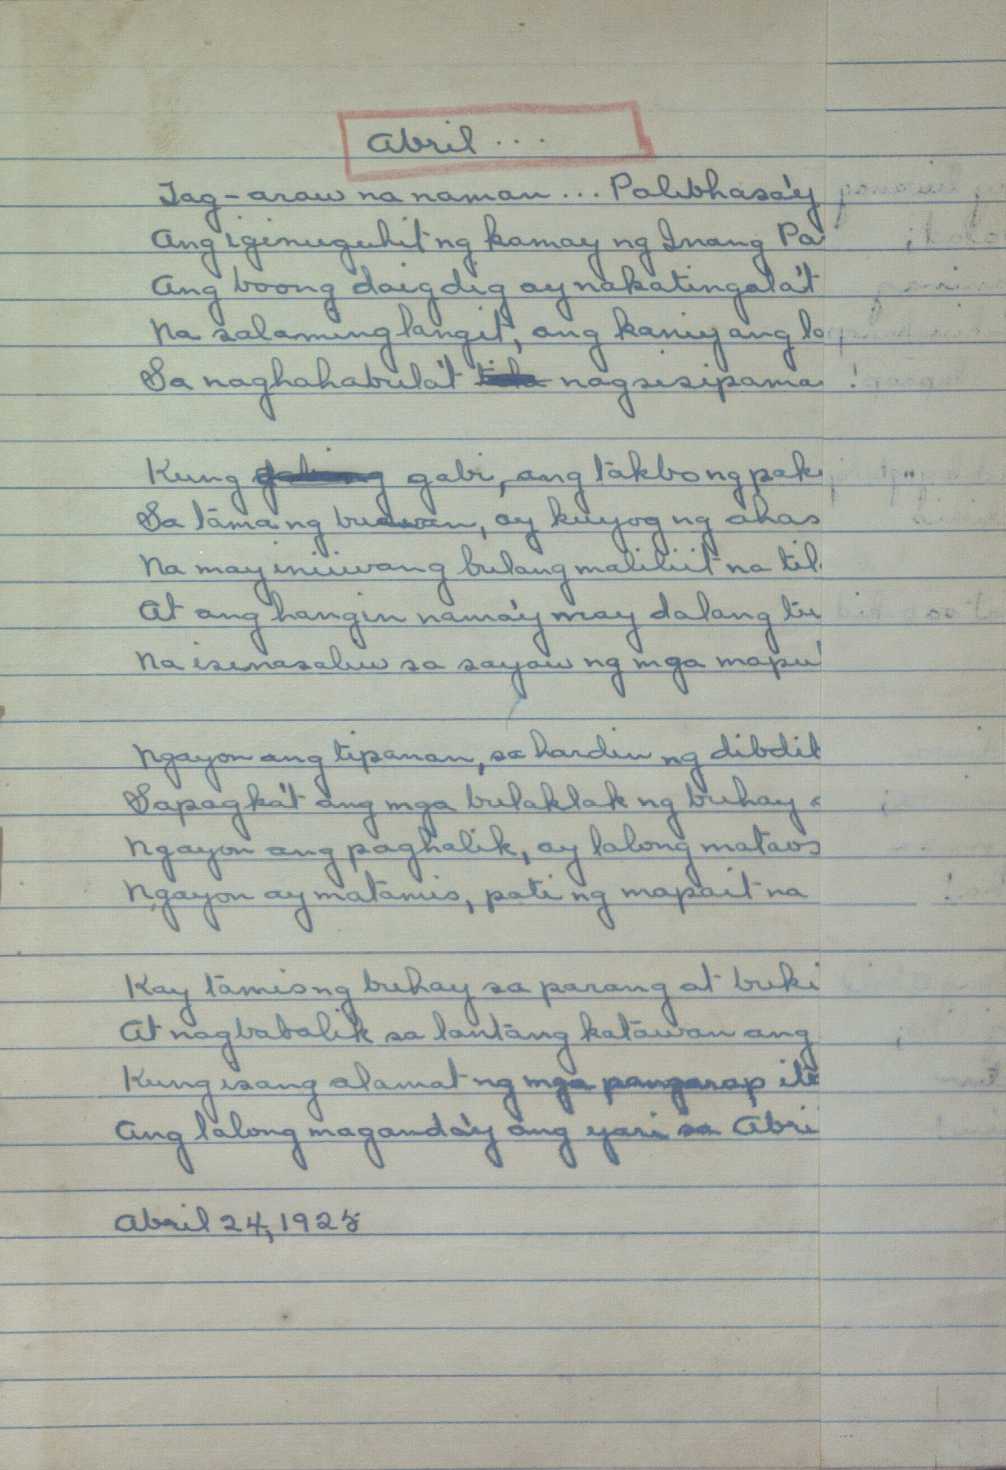 Abril ...
Tag-araw na naman ... Palibhasa'y
Ang iginuguhit ng kamay ng Inang
Ang boong daigdig ay nakatingala't
Na salaming langit, ang kaniyang
Sa naghahabula't nagsisipama
Kung gabi, ang takbo ng
Sa tama ng buwan, ay kuyog ng ahas
Na may iniiwang bulang maliliit na
At ang hangin nama'y may dalang
Na isinasaliw sa sayaw ng mga
Ngayon ang tipanan, sa hardin ng dibdib
Sapagka't ang mga bulaklak ng buhay
Ngayon ang paghalik, ay lalong mataos
Ngayon ay matamis, pati ng mapait na
Kay tamis ng buhay sa parang at buki
At nagbabalik sa lantang katawan ang
Kung isang alamat ng mga pangarap
Ang lalong maganda'y ang yari sa Abri
Abril 24, 1925